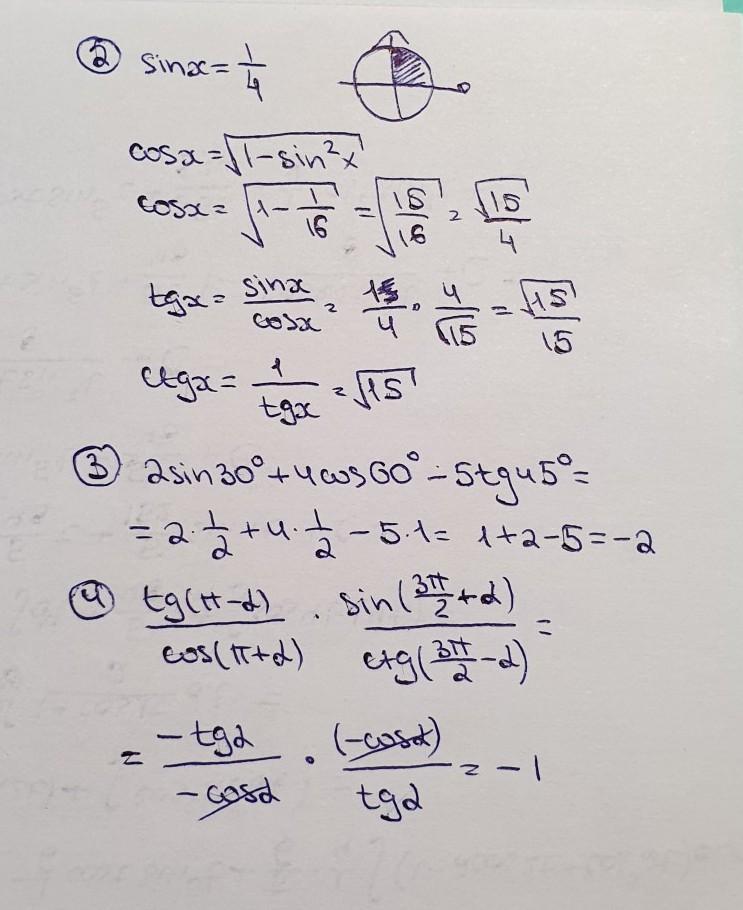 ② sinx = 1/4
cosx = √(1-sin²x)
cosx = √(1 - 1/16) = √(15/16) = √15/4
tgx = sinx/cosx = 1/4 · 4/√15 = √15/15
ctgx = 1/tgx = √15
③ 2sin30° + 4cos60° - 5tg45° =
= 2·1/2 + 4·1/2 - 5·1 = 1+2-5 = -2
④ tg(π-α)/cos(π+α) · sin(3π/2+α)/ctg(3π/2-α) =
= -tgα/-cosα · (-cosα)/tgα = -1